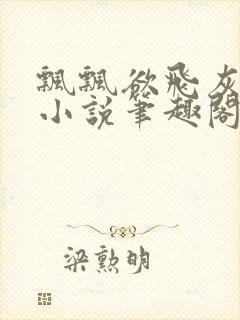 飄飄欲飛灰
小說筆趣閣
梁勲明